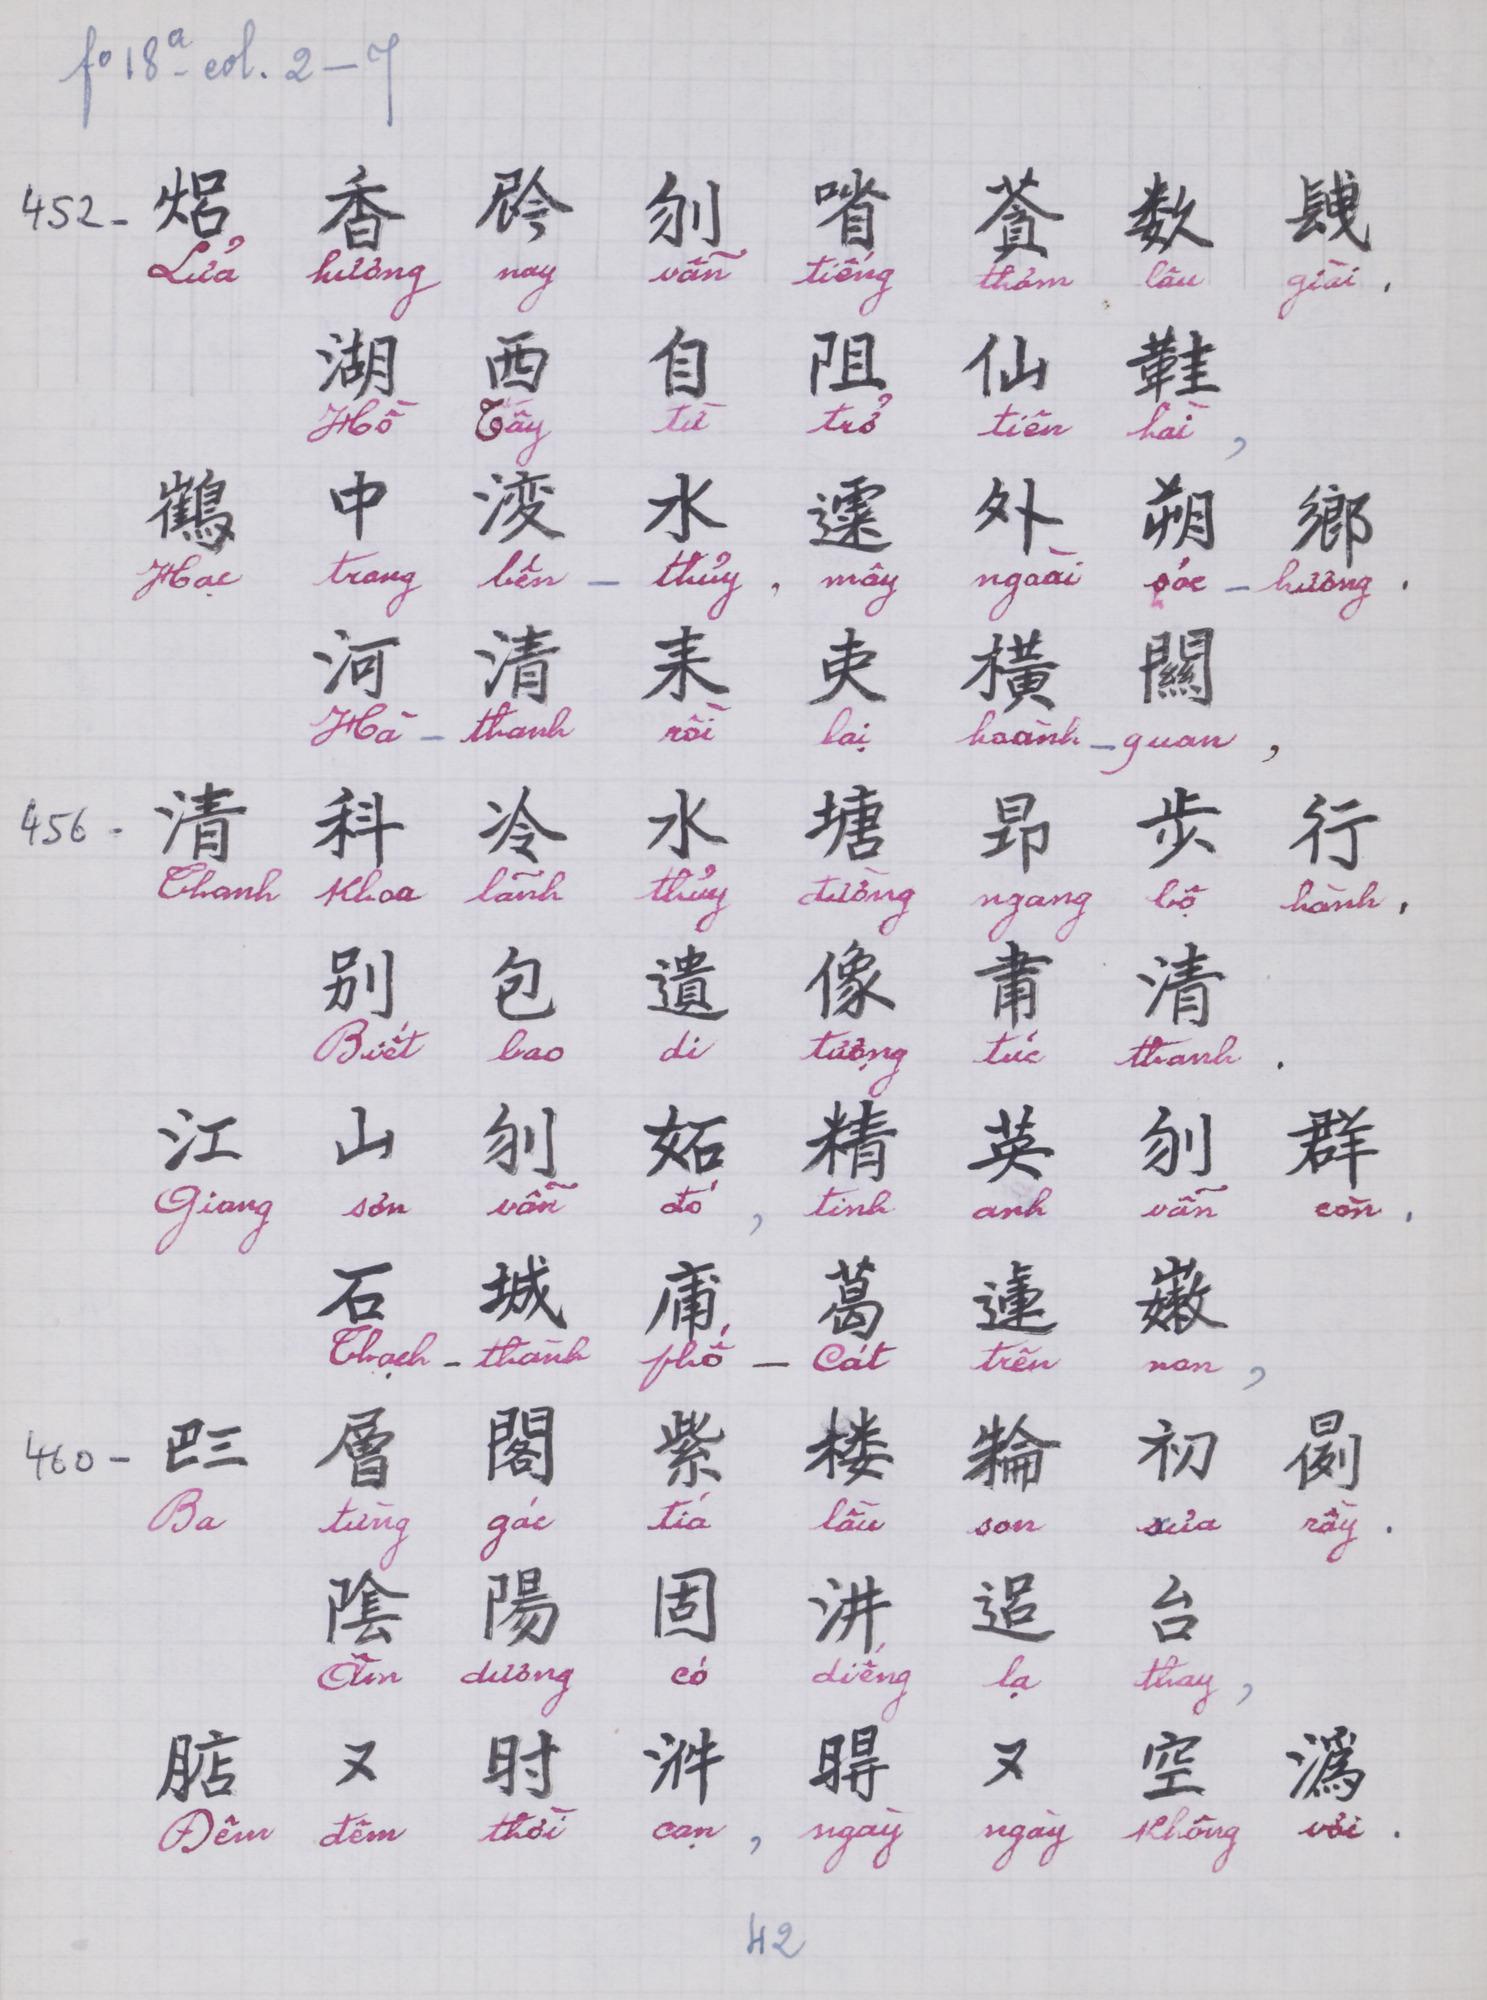 fo 18a - col. 2 – 7
452 - 焒 香 𫢩 刎 𠸛 𦹳 数 𨱽
Lửa hương nay vẫn tiếng thơm lâu giài .
湖 西 自 阻 仙 鞋
Hồ Tây từ trở tiên hài ,
鶴 中 湾 水 𨗠 外 朔 鄉
Hạc trong bến – thủy , mây ngoài sóc – hương .
河 清 耒 吏 橫 關
Hà – thanh rồi lại hoành – quan ,
456 - 清 科 冷 水 塘 昂 步 行
Thanh khoa lãnh thủy đường ngang bộ hành .
别 包 遺 像 肅 清
Biết bao di tượng túc thanh .
江 山 刎 妬 精 英 刎 群
Giang sơn vẫn đó , tinh anh vẫn còn .
石 城 庯 葛 蓮 嫩
Thạch – thành phố – Cát trên non ,
460 - 𠀧 層 閣 紫 楼 輪 初 𣋇
Ba từng gác tía lầu son xưa rầy .
陰 陽 固 汫 𨓐 台
Âm dương có diếng lạ thay ,
𣎀 又 时 汻 𣈜 又 空 溈
Đêm đêm thời cạn , ngày ngày không vơi .
42